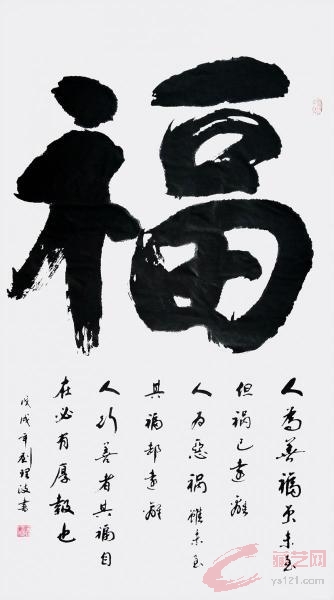 福
人为善福虽未至
但祸已远离
人为恶祸虽未至
其福却远离
人行善者其福自
在必有厚报也
戊戌年刘理汝书
藏艺网
ys121.com